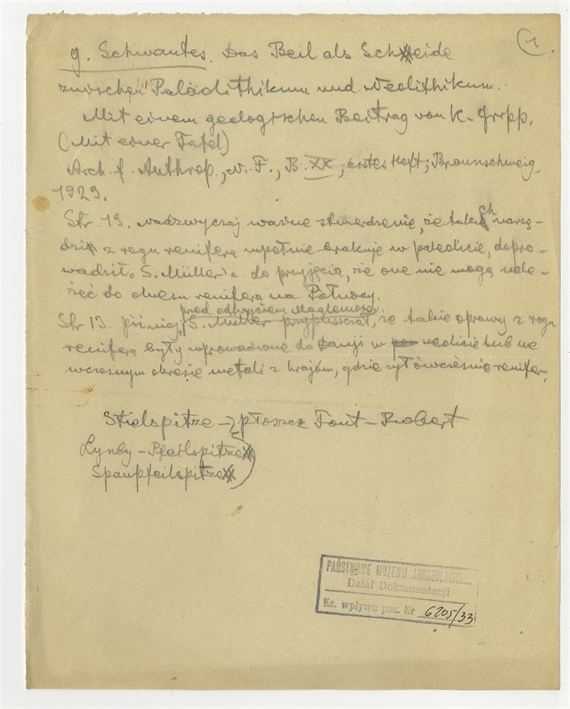 1.
G. Schwantes. Das Beil als Scheide
zwischen Paläolithikum und Neolithikum.
Mit einem geologischen Beitrag von K. Gripp.
(Mit einer Tafel)
Arch. f. Anthrop., N. F., B. XX, erstes Heft; Braunschweig,
1923.
Str 13. nadzwyczaj ważne stwierdzenie, że takich narzę-
dzi z rogu renifera zupełnie brakuje w paleolicie, dopro-
wadziło S. Müller'a do przyjęcia, że one nie mogą nale-
żeć do okresu renifera na Północy.
przed odkryciem Maglemose
Str 13. później, S. Müller przypuszczał, że takie oprawy z rogu
renifera były wprowadzone do Danji w neolicie lub we
wczesnym okresie metali z krajów, gdzie żył ówcześnie renifer.
Stielspitze - płoszcz Font-Robert
Lynby-Pfeilspitze
Spanpfeilspitze
PAŃSTWOWE MUZEUM
Dział Dokumentacji
Ks. wpływu poz. Nr 6205/33